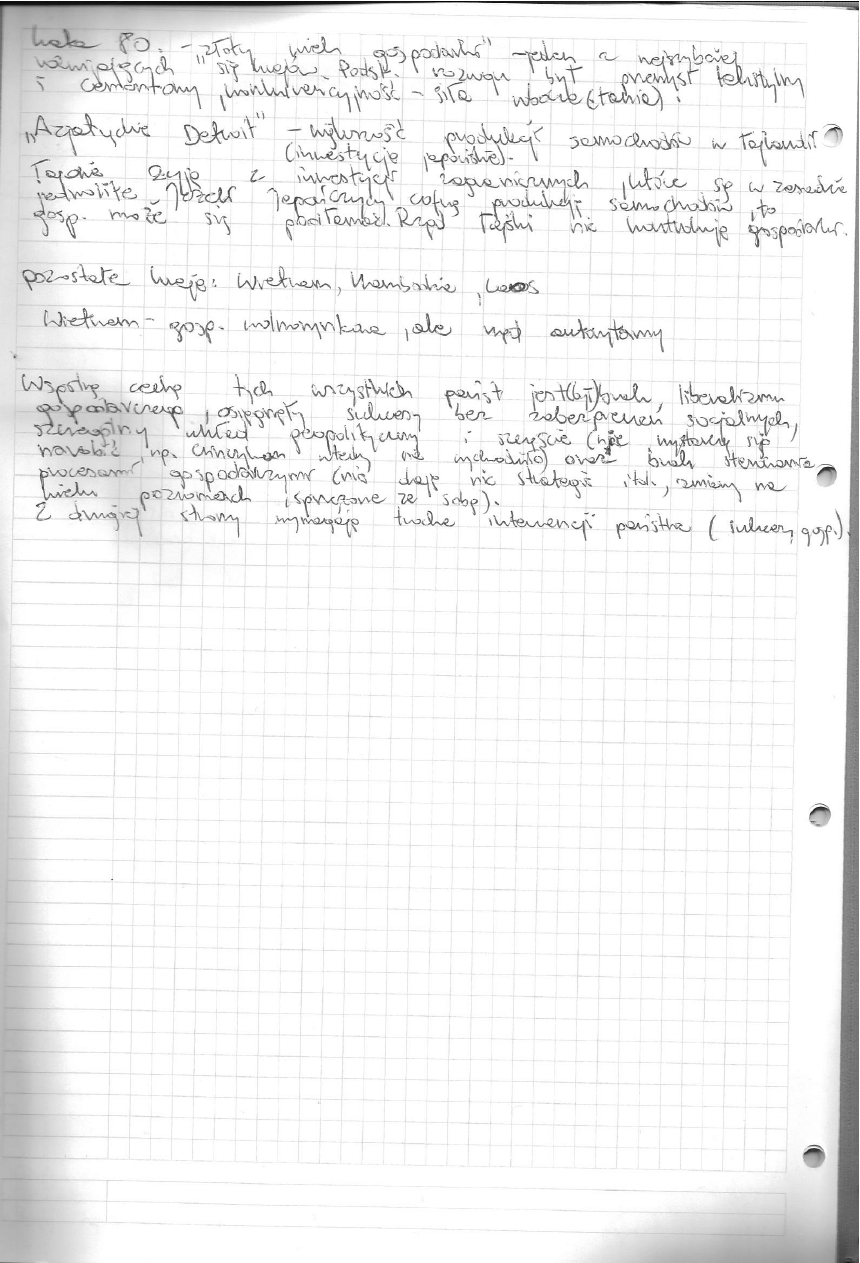 Lata 80. - "złoty wiek gospodarki" - jeden z najszybciej
rozwijających się krajów. Podst. rozwoju był przemysł tekstylny
i cementowy, konkurencyjność - siła robocza (tania).
"Azjatyckie Detroit" - wytwórczość produkcji samochodów w Tajlandii
(inwestycje japońskie).
Tajowie żyją z inwestycji zagranicznych, które są w zasadzie
jednolite. Jeżeli Japończycy cofną produkcję samochodów, to
gosp. może się połamać. Rząd Tajski nie kontroluje gospodarki.
pozostałe kraje: Wietnam, Kambodża, Laos
Wietnam - gosp. wolnorynkowa, ale rząd autorytarny
Wspólną cechą tych wszystkich państw jest(był) brak liberalizmu
gospodarczego, osiągnęły sukcesy bez zabezpieczeń socjalnych,
szczególny układ geopolityczny i szczęście (nie wystarczy się
narobić, np. Chińczykom wtedy nie wychodziło) oraz brak sterowania
procesami gospodarczymi (nie dają nic strategie itd., zmiany na
wielu poziomach, sprzeczne ze sobą).
Z drugiej strony wymagają trochę interwencji państwa (sukces, gosp.).